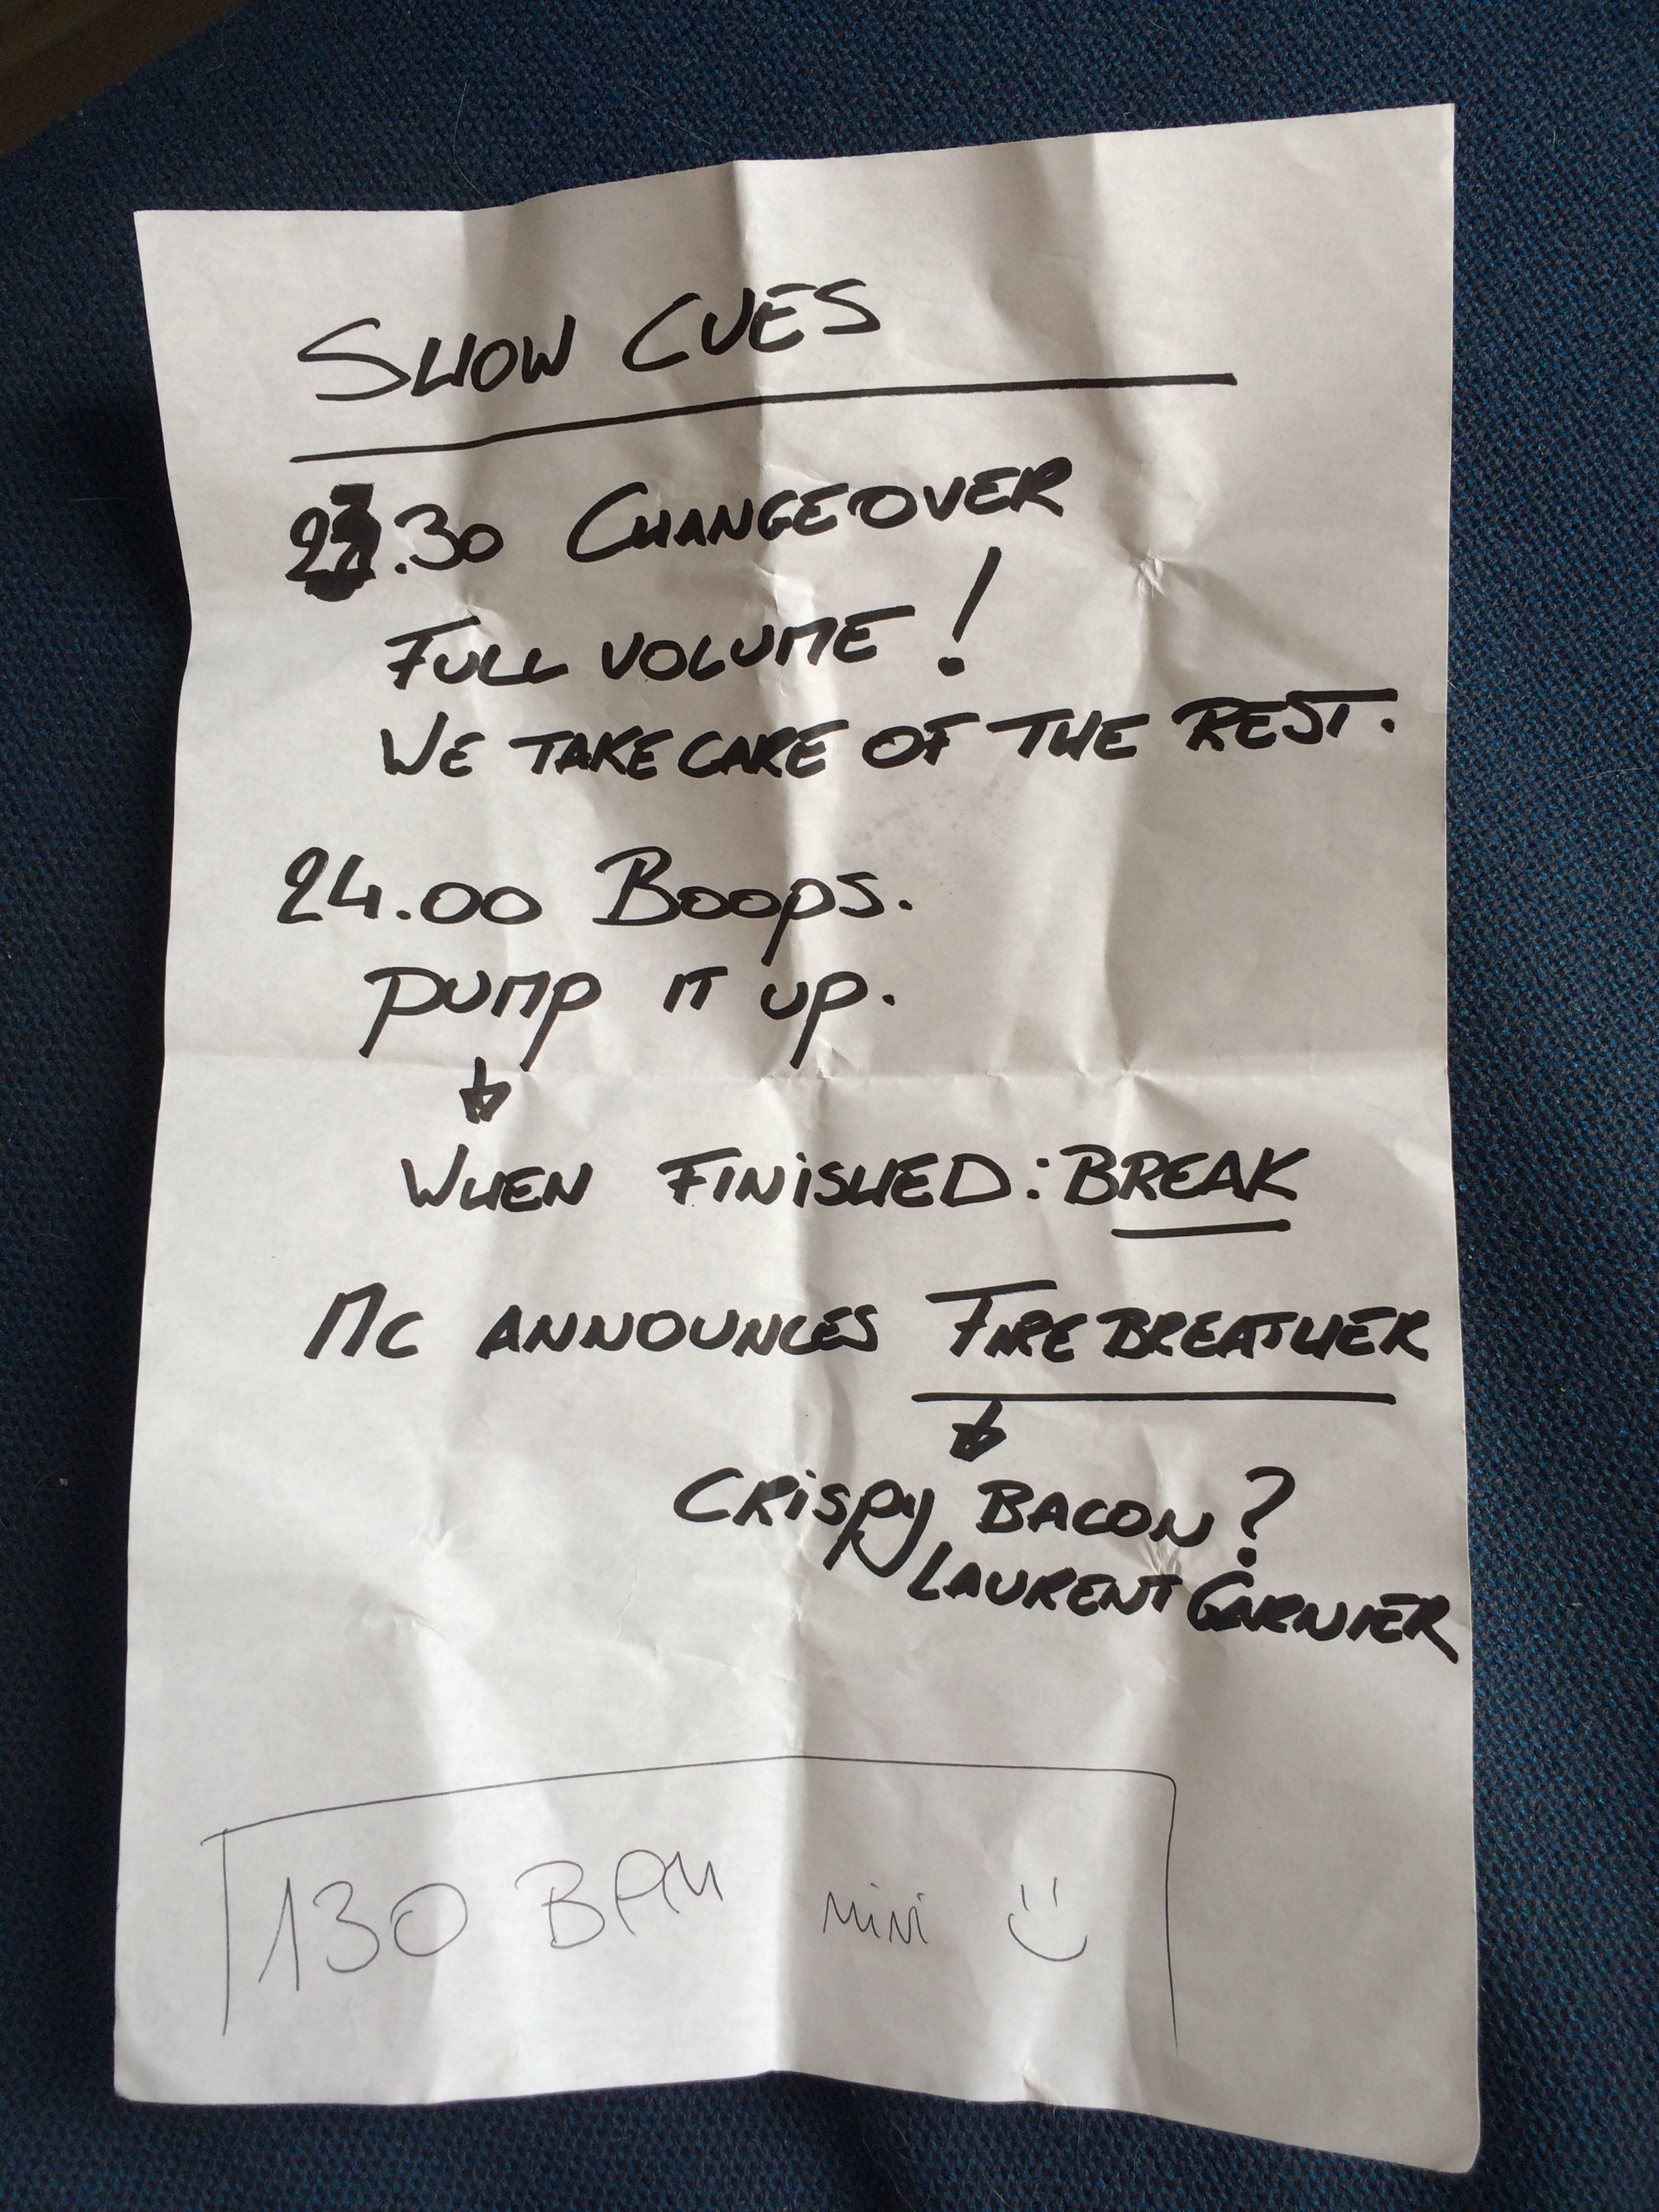 SHOW CUES
23.30 CHANGEOVER
FULL VOLUME!
WE TAKE CARE OF THE REST.
24.00 BOOPS.
PUMP IT UP.
WHEN FINISHED: BREAK
MC ANNOUNCES FIREBREATHER
CRISPY BACON?
LAURENT GARNIER
130 BPM mini